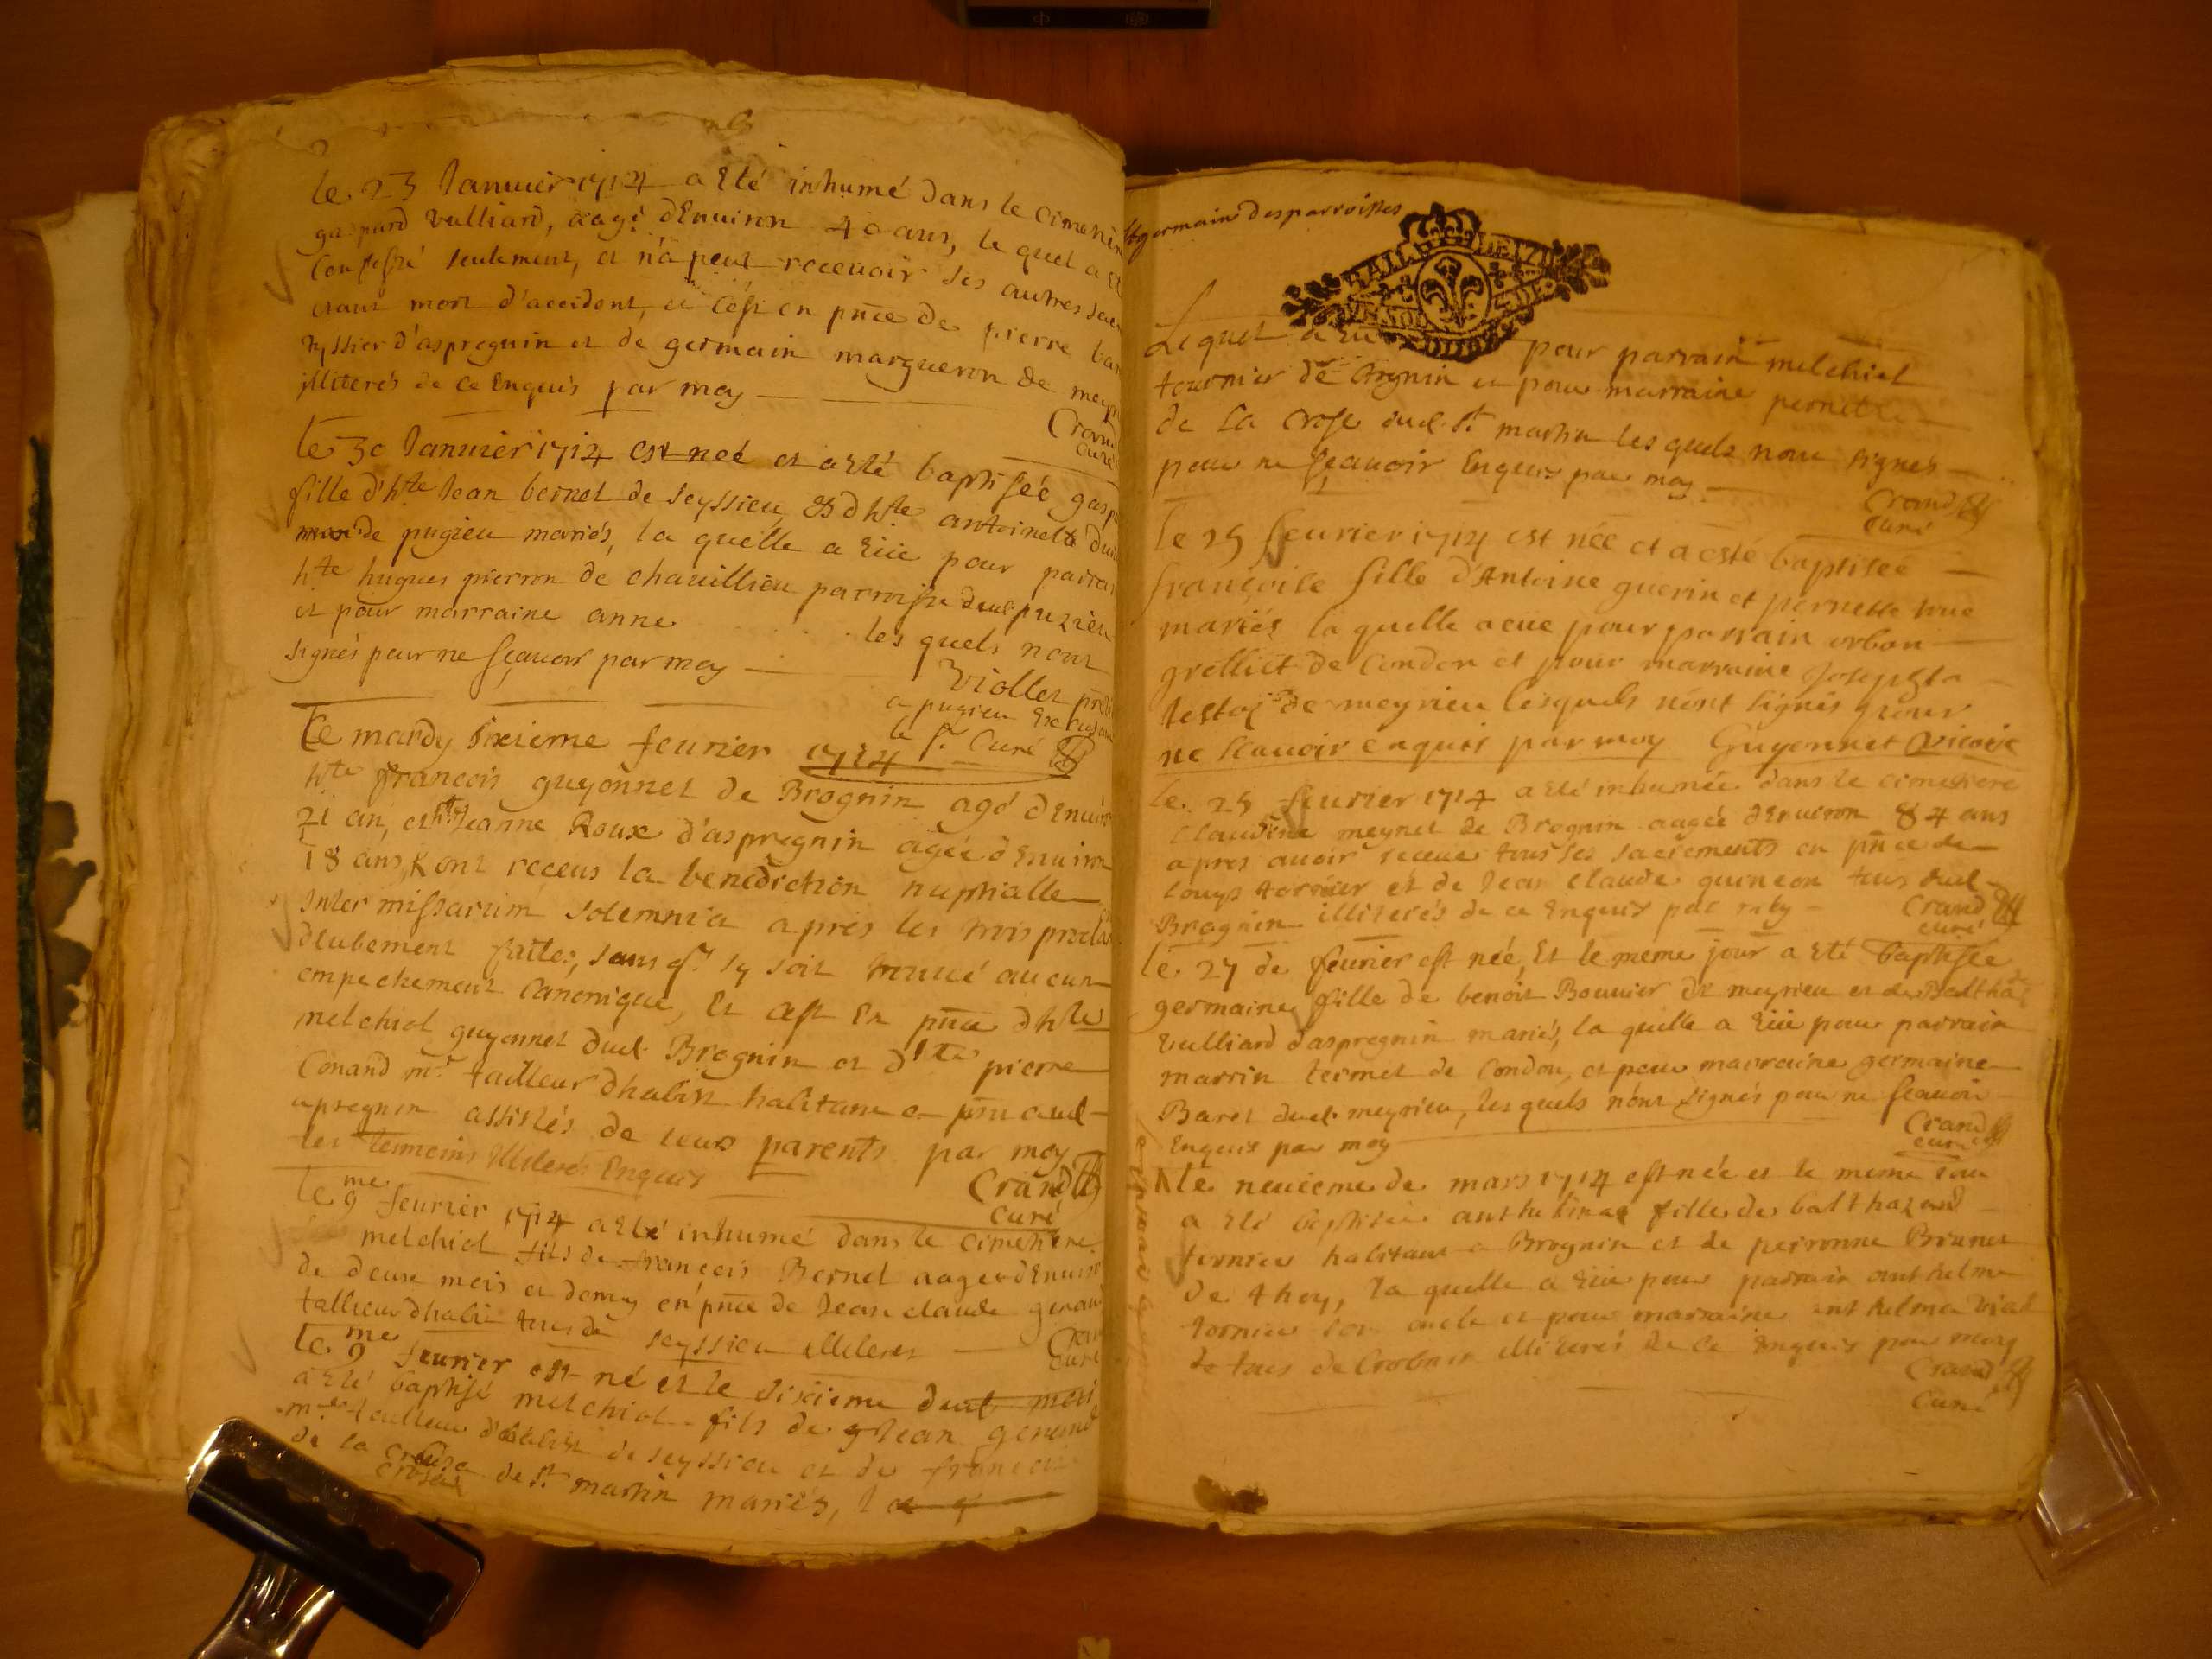 le 23 Januier 1714 a Eté inhumé dans le Cimetie
gaspard vulliard, aagé dEnuiron 40 ans, le quel a Et
Confessé seulement, et n'a peut recevoir ses autres sac
etant mort d'accident, et c'est en pñce de pierre bar
tissier d'aspregnin et de germain margueron de meyr
illiterés de ce Enquis par moy
Crand
curé
le 30 Januier 1714 est neé et a Eté baptisée gasp
fille d'hte Jean bernet de seyssieu, et d hte antoinette
de pugieu mariés, la quelle a Eüe pour parrai
hte hugues pierron de chauillieu parroisse dud. puzieu
et pour marraine anne les quels nont
signés pour ne sçauoir par moy
Viollet prê
a pugieu
le sr Curé
Le mardy sixieme feurier 1714
hte francois guyonnet de Brognin agé dEnuir
21 an, et hte Jeanne Roux d'aspregnin agée dEnuiron
18 ans, ont receus la benediction nuptialle
Inter missarum solemnia apres les trois procla
deubement faites, sans q'il sy soit trouué aucun
empechement Canonique, Et cest En pñce dhte
melchiol guyonnet dud. Brognin et dhte pierre
Conand mr. tailleur dhabist habitant
apregnin assistés de leurs parents par moy
les temoins Illiterés Enquis
Crand
curé
le 9me feurier 1714 a Eté inhumé dans le cimetiere
melchiol fils de françois Bernet aager dEnuir
de deux mois et demy en pñce de Jean claude
tallieur dhabit de seyssieu illiteres
Cran
curé
le 9me feurier est né et le sixieme dud. mois
a Eté baptisé melchiol fils de Jean
mre tailleur d'habist de seyssieu et de francoise
de la
crose de St martin mariés,
St germain des parroisses
GALL DE 171
Lequel a Eu pour parrain melchiol
tournier de Brognin et pour marraine pernette
de la Crose dud. St martin les quels nont signés
pour ne sçauoir Enquis par moy
Crand
Curé
le 25 feurier 1714 est née et a esté baptisée
françoise fille d'Antoine guerin et pernette
mariés la quelle a eüe pour parrain orban
grelliet de Condon et pour marraine Josephta
de meyrieu lesquels n'ont signés pour
ne scauoir enquis par moy Guyonnet vicaire
le 25 feurier 1714 a Eté inhumée dans le cimetiere
Claudine meynet de Brognin aagée dEnuiron 84 ans
apres auoir receue tous ses sacrements en pñce de
Louys et de Jean Claude tous dud.
Brognin illiterés de ce Enquis par moy
Crand
curé
le 27 de feurier est née, Et le meme jour a Eté baptisée
germaine fille de benoit Bouuier de meyrieu et de
vulliard daspregnin mariés, la quelle a Eüe pour parrain
martin termet de Condon, et pour marraine germaine
Baret dud. meyrieu, les quels n'ont signés pour ne sçauoir
Enquis par moy
Crand
curé
le neuieme de mars 1714 est née et le meme jour
a Eté baptisée anthelinae fille de balthazard
tornier habitant a Brognin et de peironne Brunet
De thoy, la quelle a Eüe pour parrain anthelme
tornier son oncle et pour marraine anthelma vial
illiterés de ce Enquis par moy
Crand
Curé